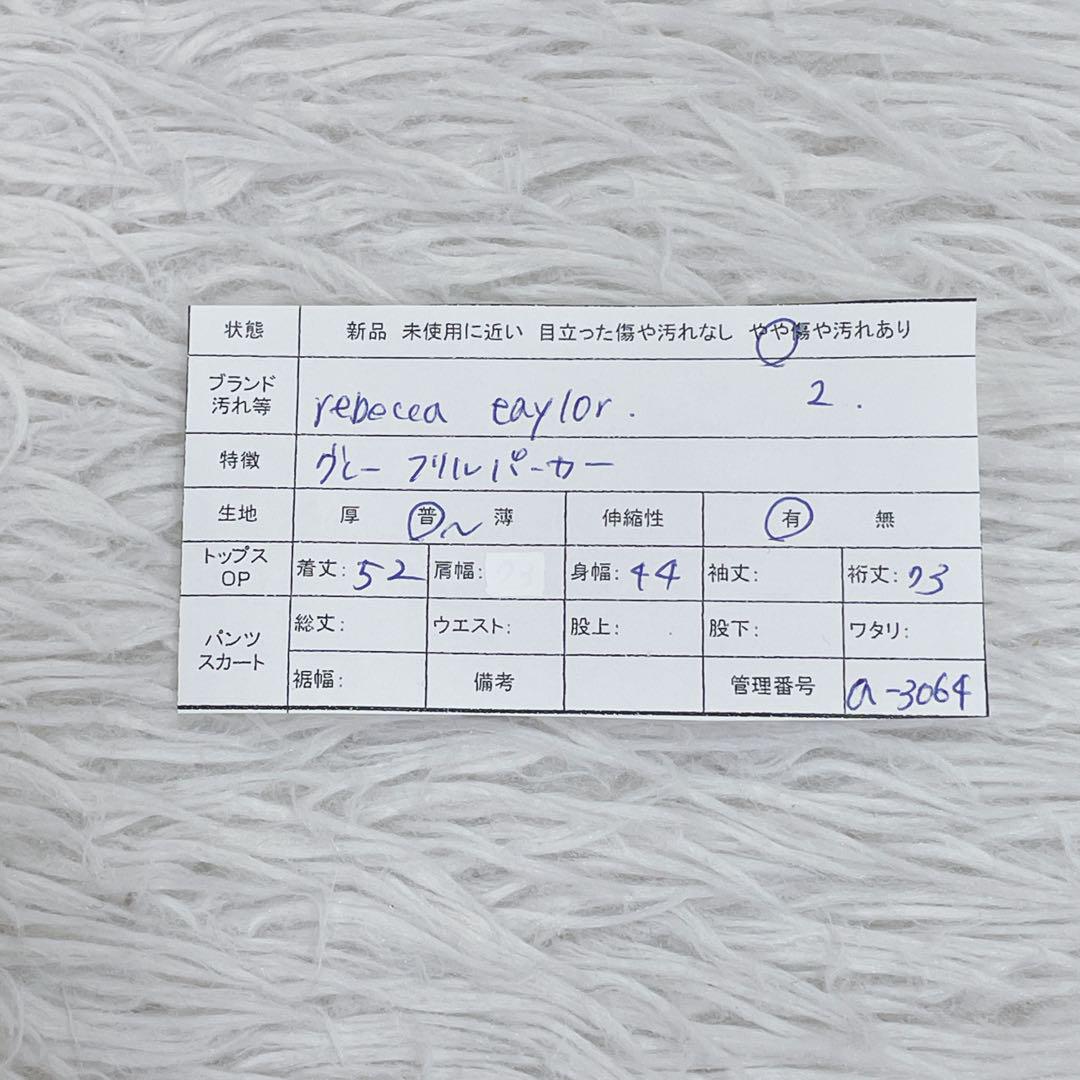 状態 新品 未使用に近い 目立った傷や汚れなし やや傷や汚れあり
ブランド
汚れ等 rebecca taylor. 2.
特徴 グレー フリルパーカー
生地 厚 普～薄 伸縮性 有 無
トップス
OP 着丈: 52 肩幅: 身幅: 44 袖丈: 裄丈: 73
パンツ
スカート 総丈: ウエスト: 股上: 股下: ワタリ:
裾幅: 備考 管理番号 a-3064